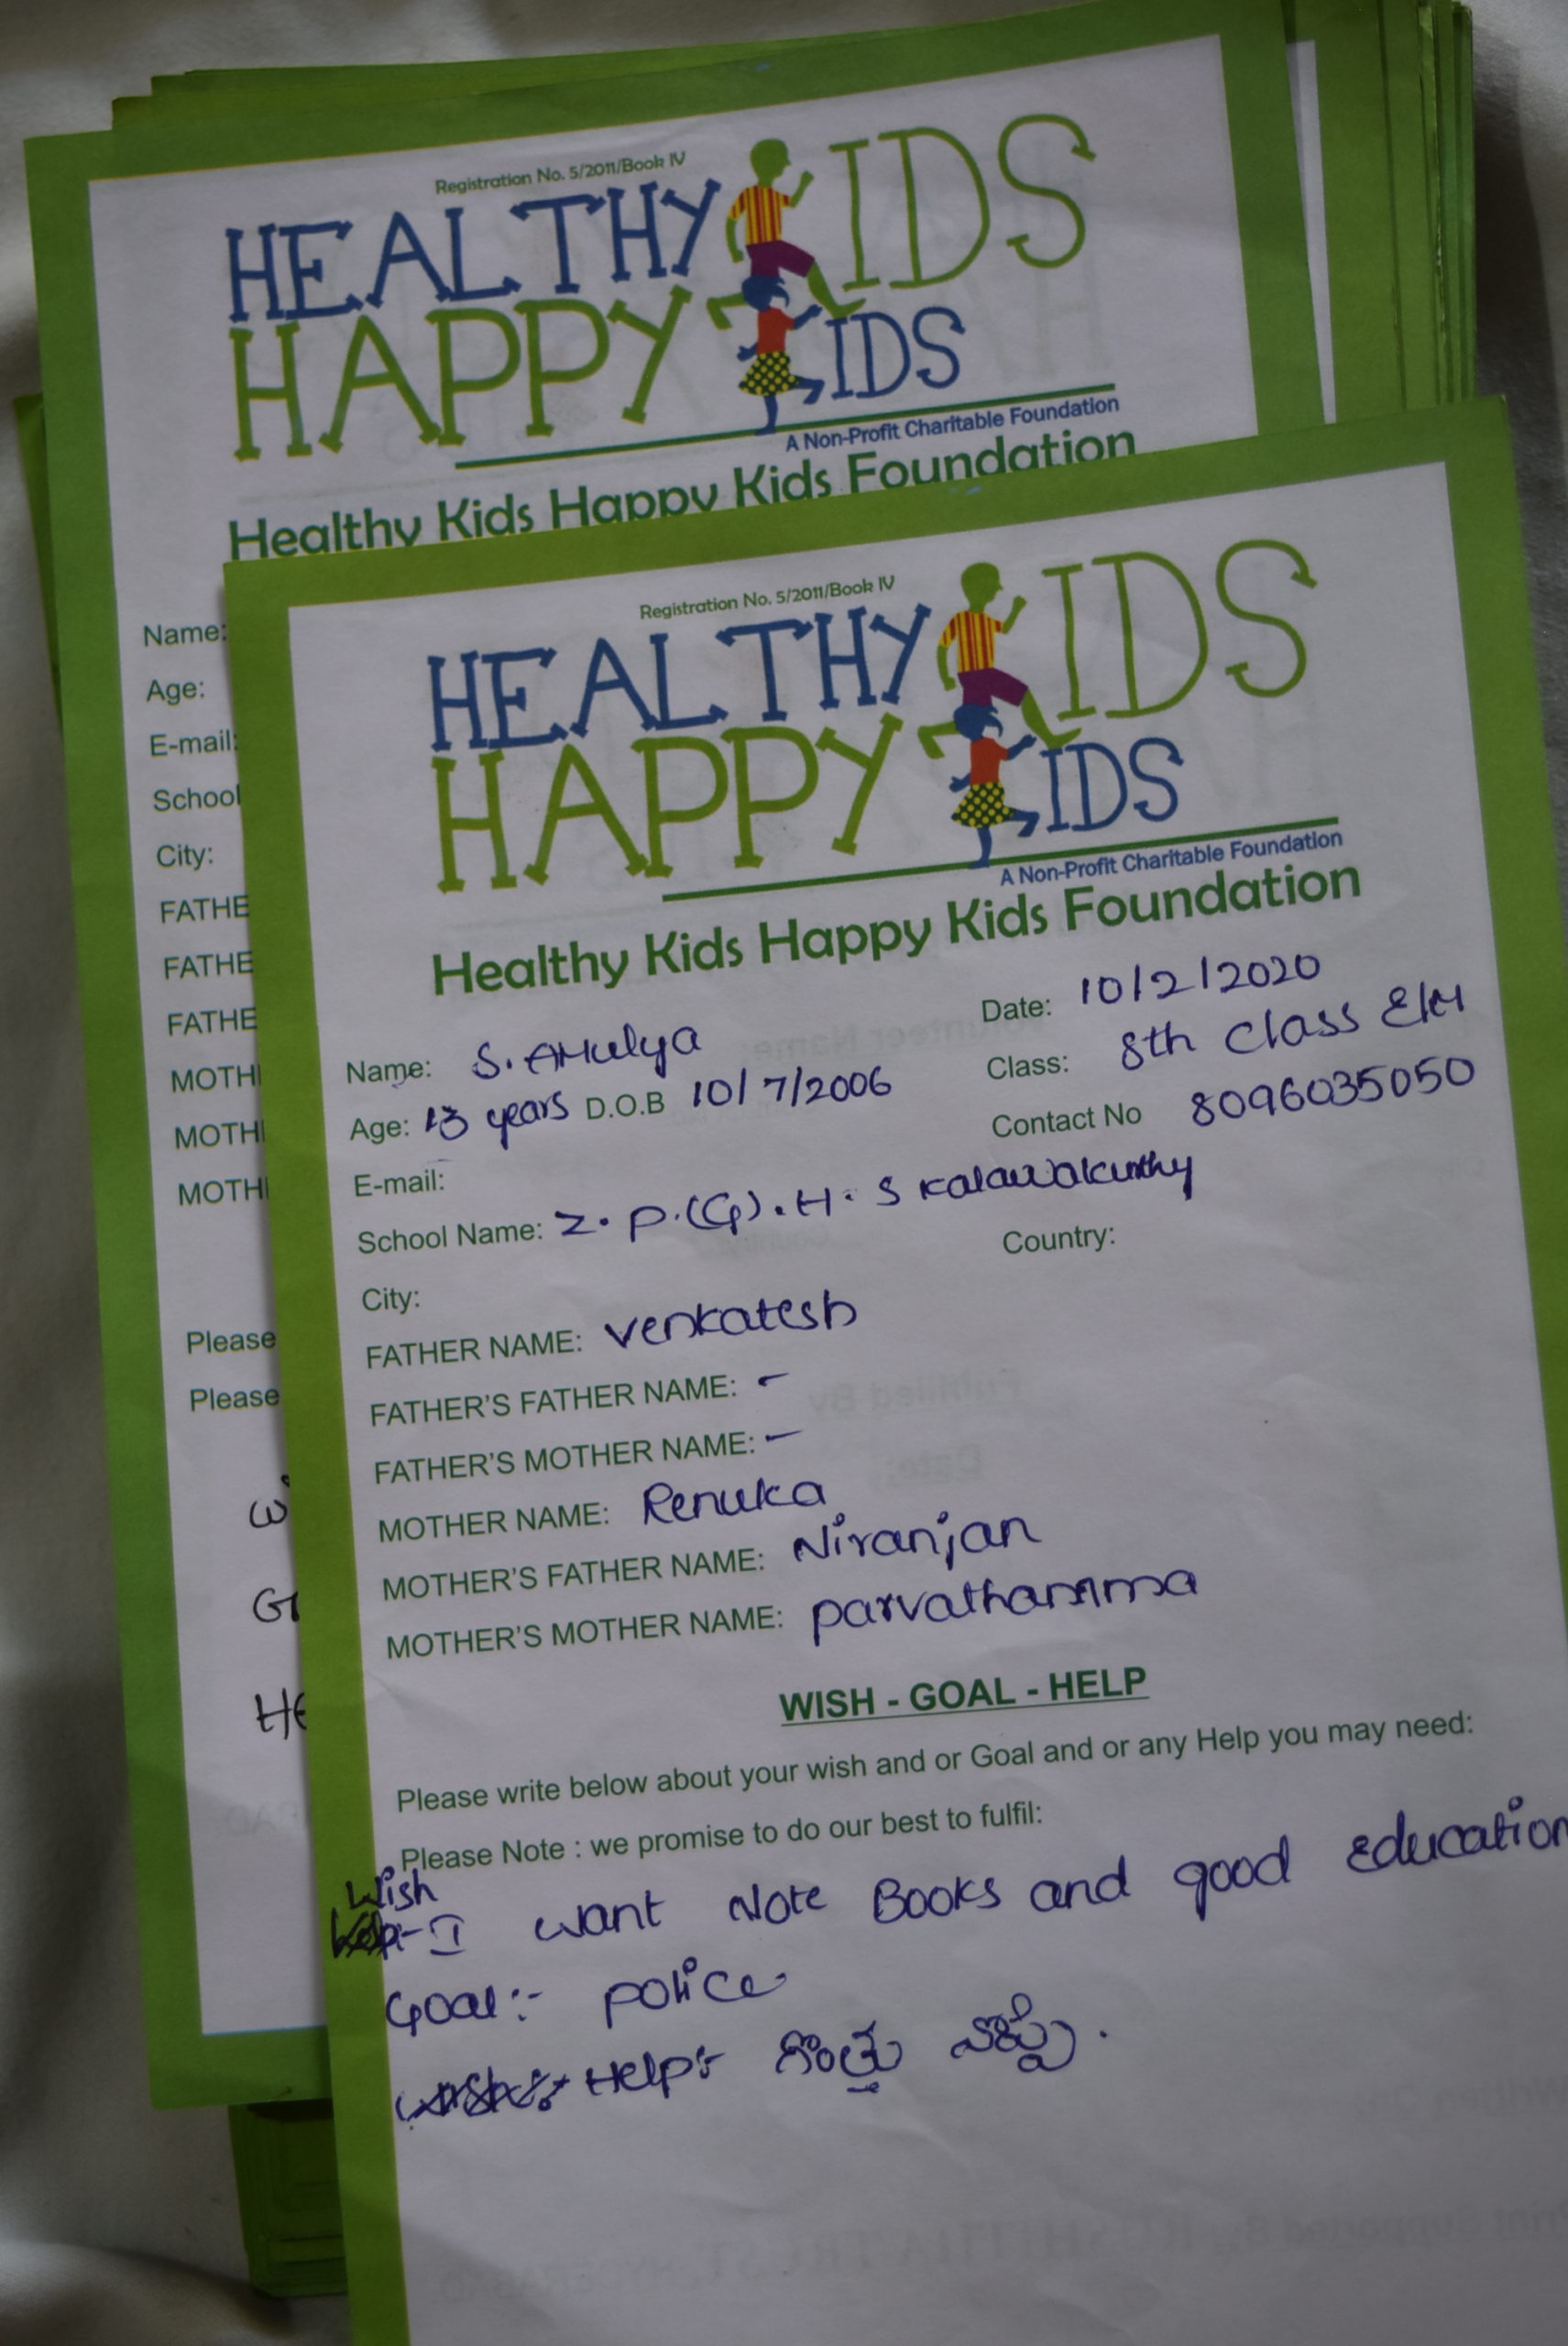 Registration No. 5/2011/Book IV
HEALTHY KIDS
HAPPY KIDS
A Non-Profit Charitable Foundation
Healthy Kids Happy Kids Foundation
Name:
Age:
E-mail:
School
City:
FATHE
FATHE
FATHE
MOTH
MOTH
MOTH
Please
Please
Wi
G
HE
Registration No. 5/2011/Book IV
HEALTHY KIDS
HAPPY KIDS
A Non-Profit Charitable Foundation
Healthy Kids Happy Kids Foundation
Date: 10/2/2020
Name: S. AHulya Class: 8th Class E/M
Age: 13 years D.O.B 10/7/2006 Contact No 8096035050
E-mail:
School Name: Z.P.(G).H.S kalawakurthy
City: Country:
FATHER NAME: venkatesh
FATHER'S FATHER NAME: -
FATHER'S MOTHER NAME: -
MOTHER NAME: Renuka
MOTHER'S FATHER NAME: Niranjan
MOTHER'S MOTHER NAME: parvathamma
WISH - GOAL - HELP
Please write below about your wish and or Goal and or any Help you may need:
Please Note : we promise to do our best to fulfil:
Wish
:- I want Note Books and good Education
Goal:- police
Help:- గొంతు నొప్పి.